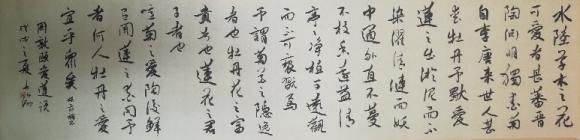 水陸草木之花
可愛者甚蕃晉
陶淵明獨愛菊
自李唐來世人甚
愛牡丹予獨愛
蓮之出淤泥而不
染濯清漣而妖
中通外直不蔓
不枝香遠益清
亭亭净植可遠觀
而不可褻翫焉
予謂菊花之隱逸
者也牡丹花之富
貴者也蓮花之君
子者也
噫菊之愛陶後鮮
有聞蓮之愛同予
者何人牡丹之愛
宜乎衆矣
周敦頤愛蓮說
戊戌之夏